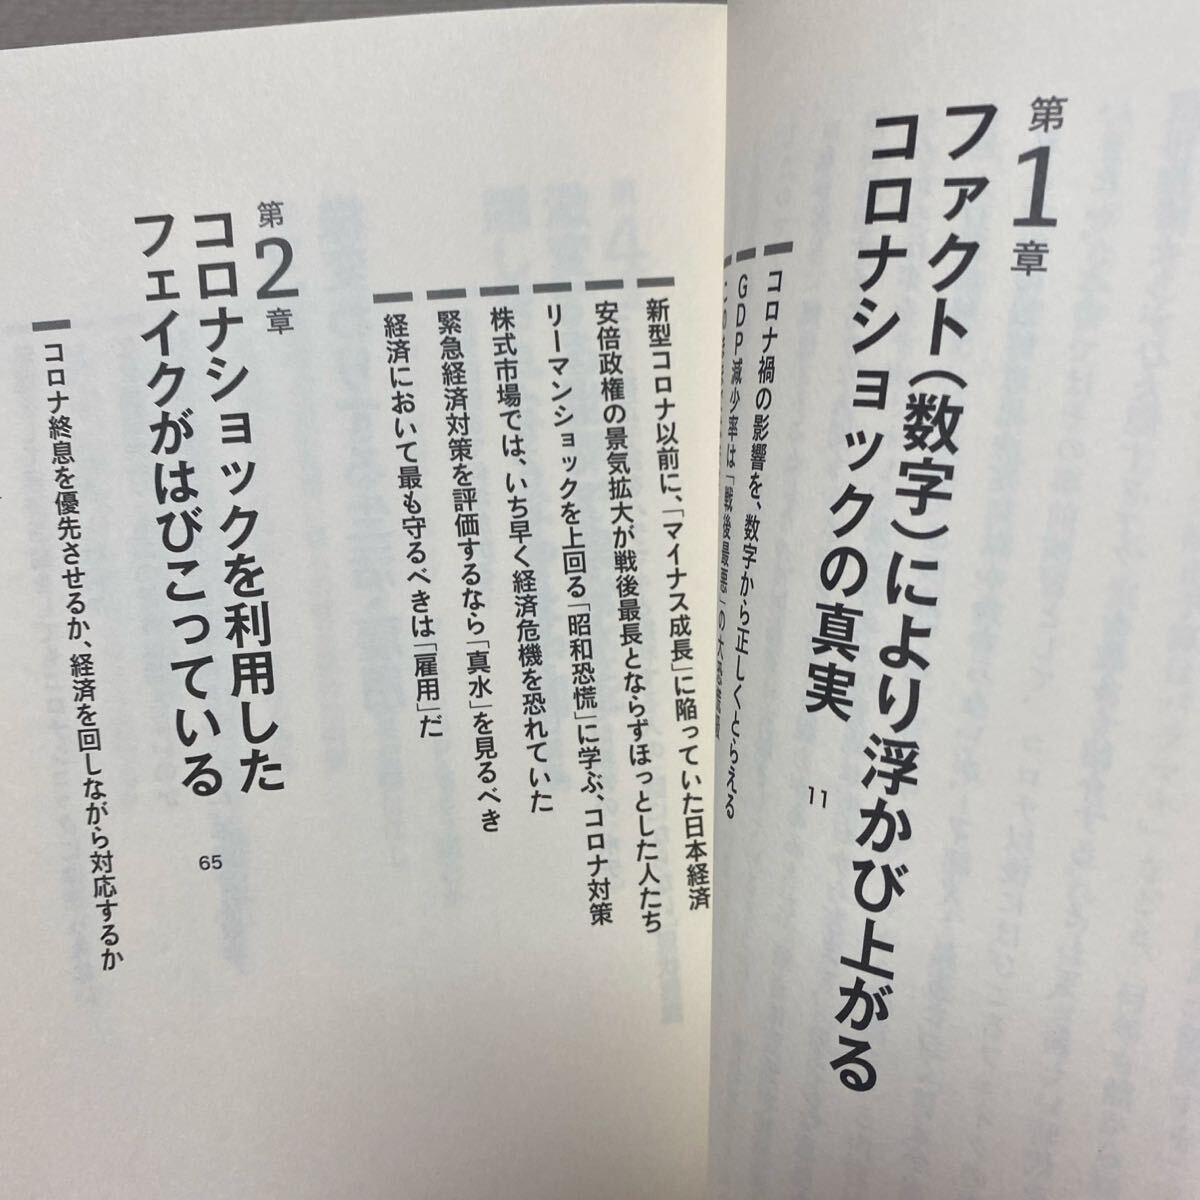 第1章
ファクト（数字）により浮かび上がる
コロナショックの真実
11
コロナ禍の影響を、数字から正しくとらえる
GDP減少率は「戦後最悪」の大恐慌
新型コロナ以前に、「マイナス成長」に陥っていた日本経済
安倍政権の景気拡大が戦後最長とならずほっとした人たち
リーマンショックを上回る「昭和恐慌」に学ぶ、コロナ対策
株式市場では、いち早く経済危機を恐れていた
緊急経済対策を評価するなら「真水」を見るべき
経済において最も守るべきは「雇用」だ
第2章
コロナショックを利用した
フェイクがはびこっている
65
コロナ終息を優先させるか、経済を回しながら対応するか